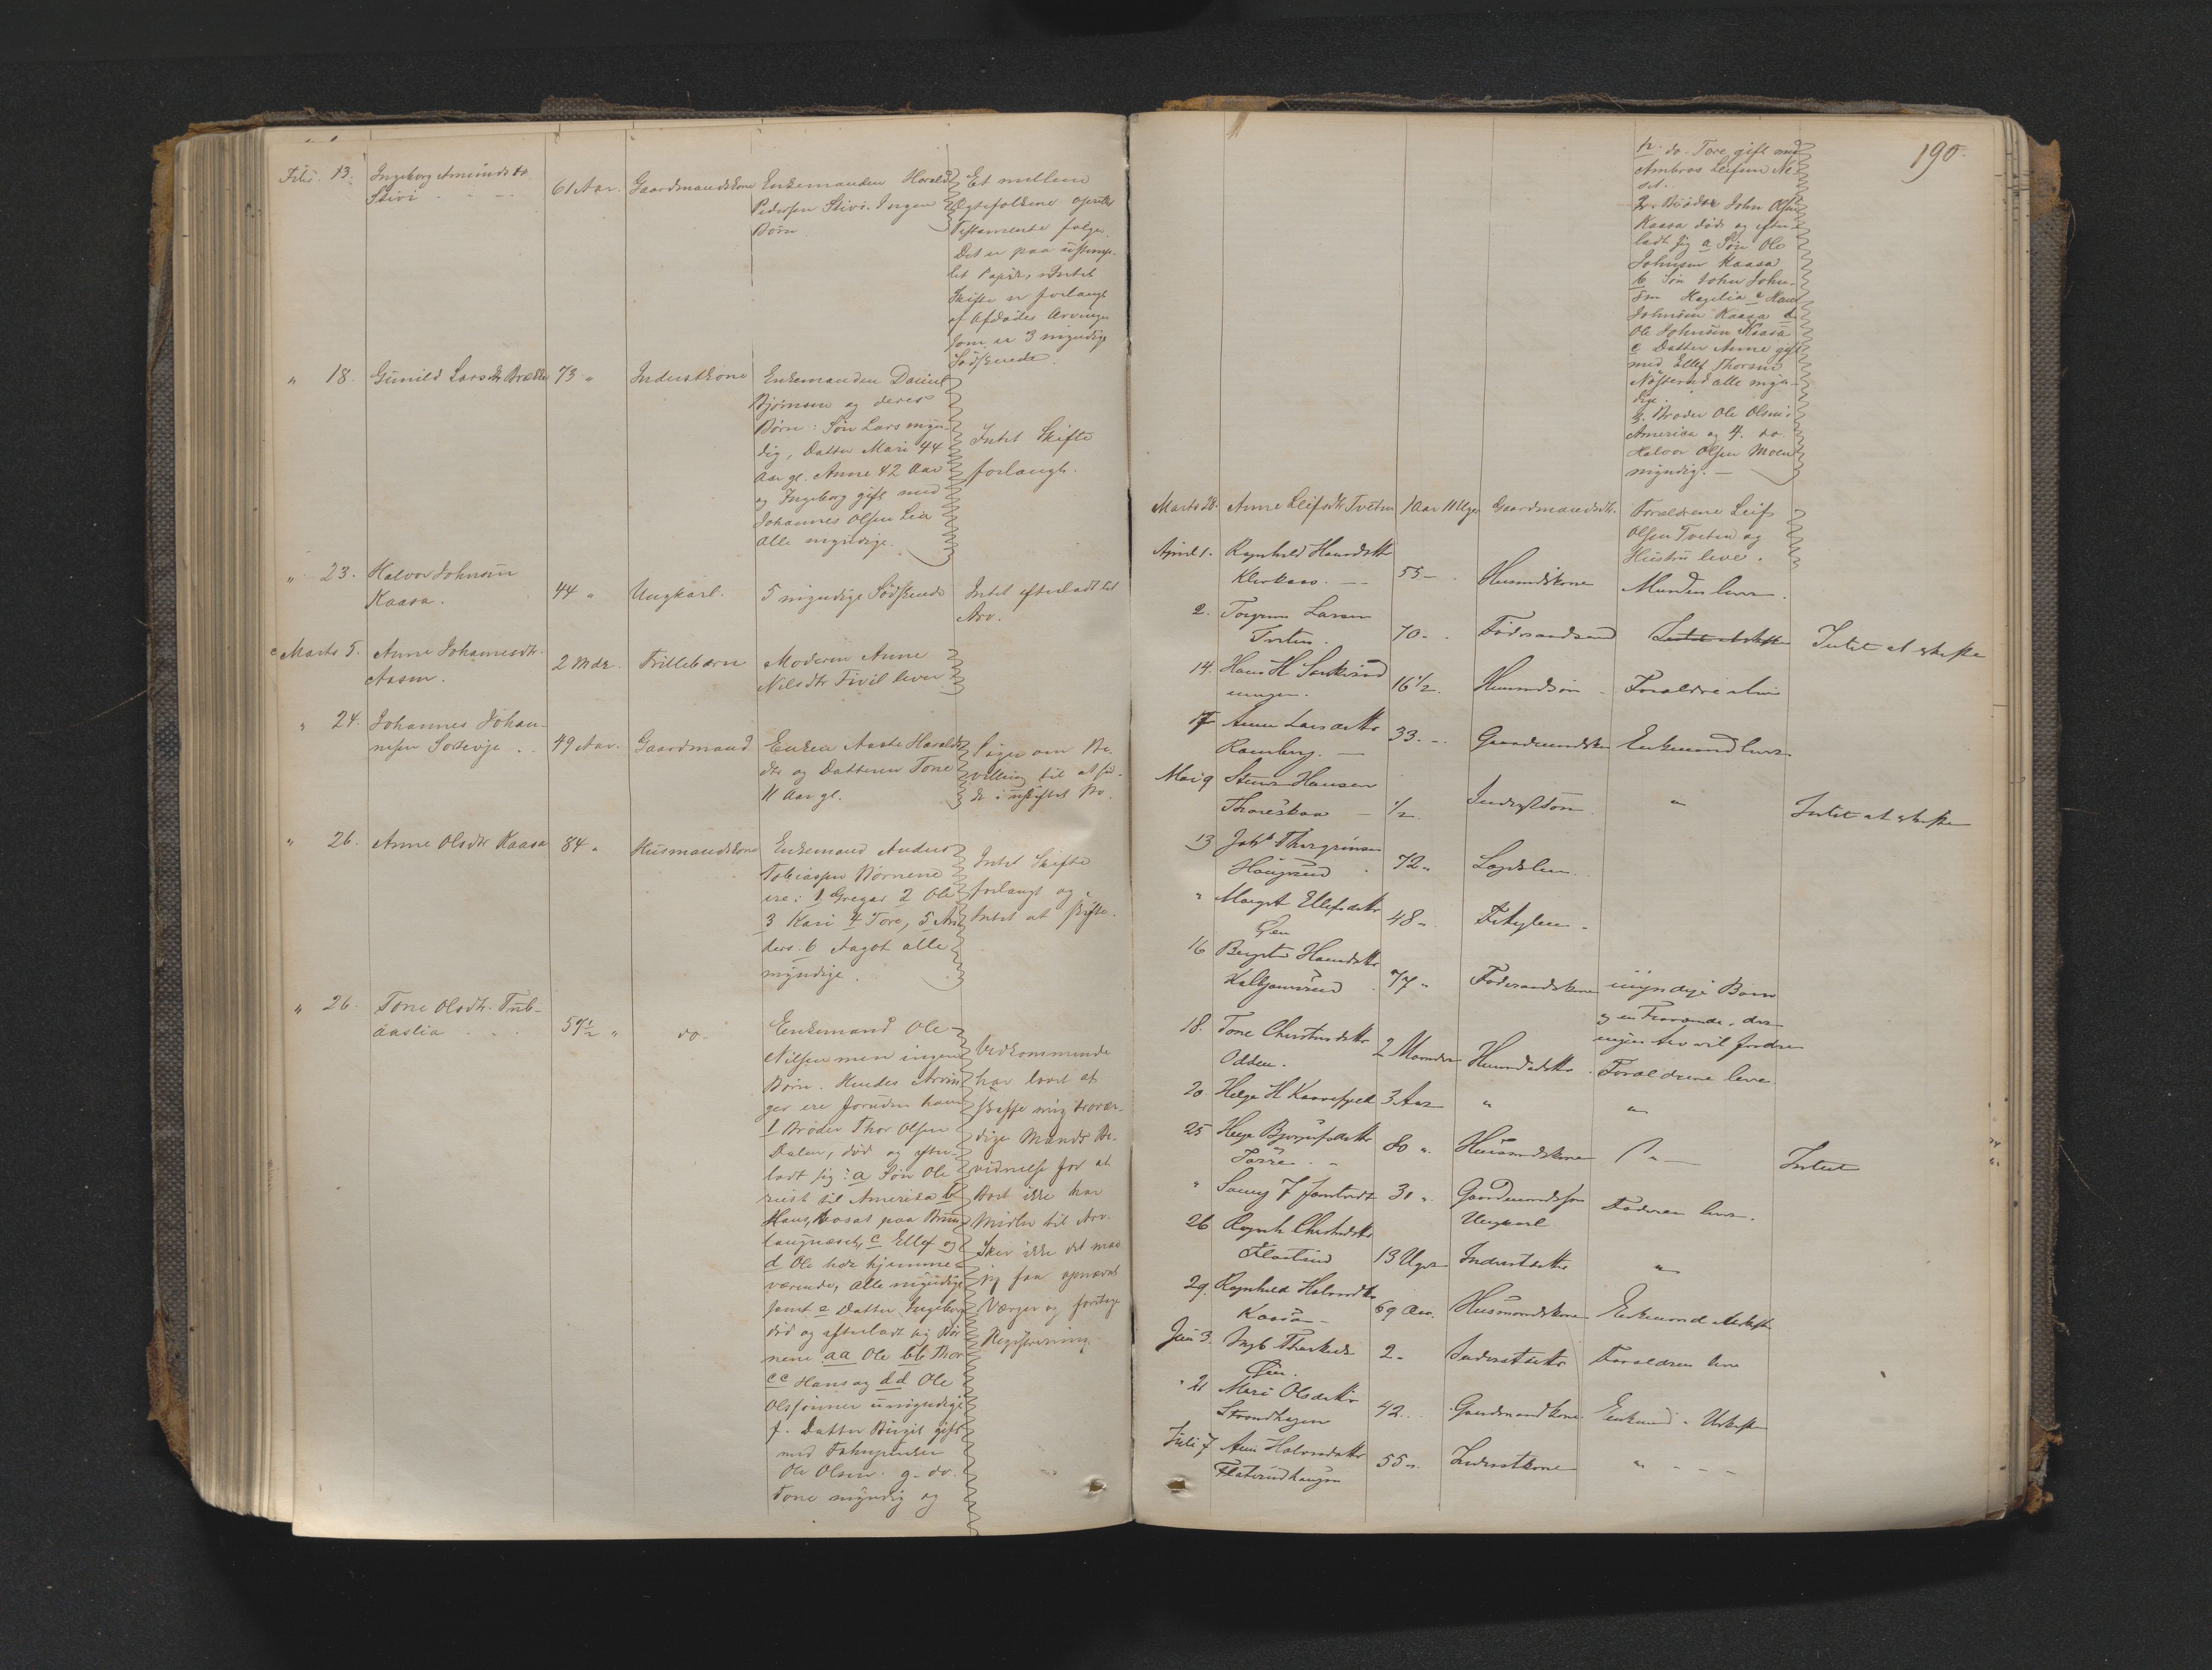 Febr. 13. Ingeborg Amundsdtr
Stivi
61 Aar. Gaardmandskone
Enkemanden Harald
Pedersen Stivi. Ingen
Børn.
Et mellem
Ægtefolkene oprettet
Testamente følger.
Det er paa ustemp-
let Papir, Intet
Skifte er forlangt
af Afdødes Arvinger
som er 3 myndige
Sødskende.
" 18. Gunild Larsdtr Brække 73 " Inderstkone
Enkemanden Daniel
Bjørnsen og deres
Børn: Søn Lars myn-
dig, Datter Mari 44
Aar gl. Anne 42 Aar
og Ingeborg gift med
Johannes Olsen Lia
alle myndige.
Intet Skifte
forlangt.
" 23. Halvor Johnsen
Kaasa.
44 " Ungkarl. 5 myndige Sødskende
Intet efterladt til
Arv.
Marts 5. Anne Johannesdtr.
Aasen.
2 Mdr. Frillebarn
Moderen Anne
Nilsdtr Tivil lever
" 24. Johannes Johan-
nesen
49 Aar. Gaardmand
Enken Aaste Haralds-
dtr og Datteren Tone
11 Aar gl.
Søger om Be-
villing til at sid-
de i uskiftet Bo.
" 26. Anne Olsdtr Kaasa 84 " Husmandskone
Enkemand Anders
Tobiassen Børnene
ere: 1 Gregar 2 Ole
3 Kari 4 Tore, 5 An-
ders. 6 Aagot alle
myndige.
Intet Skifte
forlangt og
Intet at skifte.
" 26. Tone Olsdtr. Tub-
aaslia
57½ " do.
Enkemand Ole
Nilsen men ingen
Børn. Hendes Arvin-
ger ere foruden ham
1 Broder Thor Olsen
Dalen, død og efter-
ladt sig: a Søn Ole
reist til Amerika b
Hans, bosat paa Brun-
laugnæset, c Ellef og
d Ole her hjemme-
værende, alle myndige
samt e Datter Ingeborg
død og efterladt sig Bør-
nene aa Ole bb Thor
cc Hans og dd Ole
Olssønner umyndige
f. Datter Birgit gift
med
Ole Olsen. g. do.
Tone myndig og
Vedkommende
har lovet at
skaffe mig trovær-
dige Mænds Be-
vidnelse for at
Boet ikke har
Midler til Arv.
Sker ikke det maa
jeg faa opnævnt
Værger og foretage
Registrering.
190.
h. do. Tore gift med
Ambros Leifsen Ne-
set.
2. Broder John Olsen
Kaasa død og efter-
ladt sig a Søn Ole
Johnsen Kaasa
b Søn John John-
sen Haglia c Hans
Johnsen Kaasa d
Ole Johnsen Kaasa
e Datter Anne gift
med Ellef Thorsen
alle myn-
dige.
3. Broder Ole Olsen i
Amerika og 4. do.
Halvor Olsen Moen
myndig. —
Marts 28. Anne Leifsdtr Tveten 1 Aar 11 Uger Gaardmandsdtr.
Forældrene Leif
Olsen Tveten og
Hustru leve.
April 1. Ragnhild Hansdatter
55 — Husmdskone Manden lever.
2. Torgrim Larsen
Tveten. 70 — Føderaadsmd Intet at skifte Intet at skifte
14. Hans H
16½. Husmdsøn Forældre leve
17 Anne Larsdatter
Ramberg. — 33. — Gaardmandskone Enkemand lever
Mai 9 Stener Hansen
— ½ Inderstsøn " Intet at skifte
13 Johs Thorgrimsen
Haugerud 72 " Lægdslem
" Margit Ellefsdatter
Øen 48 "
16 Bergit Hansdatter
77 " Føderaadskone myndige Børn
18. Tone Christensdatter
Odden. 2 Maaneder Husmdsdatter. Forældrene leve
20. Helge H 3 Aar " "
25 Hege Bjørnsdatter
80 " Husmandskone — " — Intet
" 31 " Gaardmandssøn Faderen lever.
Ungkarl
26 Ragnh. Christensdtr
Flaterud 13 Uger Inderstdatter "
29. Ragnhild Halvorsdtr
Kaasa — 69 Aar. Husmandskone Enkemand
Juni 3. Ingb.
Øen. 2 — Inderstdatter Forældrene leve
" 21 Mari Olsdatter
Strandhagen 42 Gaardmandskone Enkemd.
Juli 7 Anne Halvorsdatter
Flaterudhaugen 55 " Inderstkone " — — —